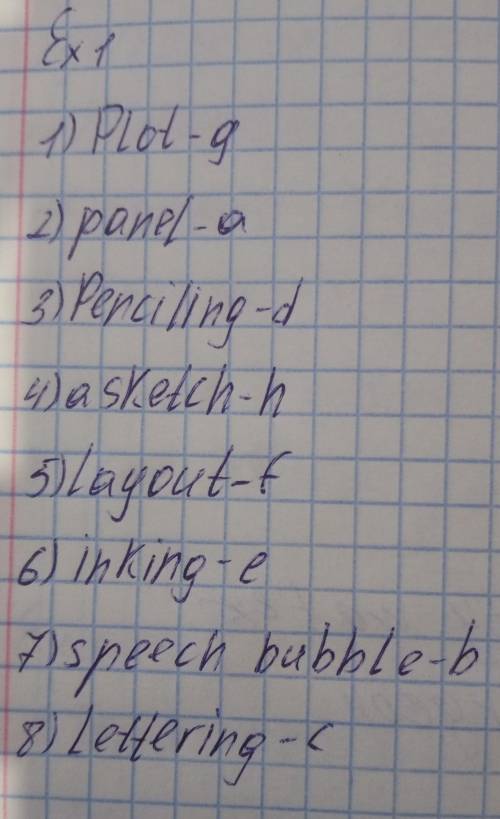 Ex 1
1) Plot - g
2) panel - a
3) Penciling - d
4) a sketch - h
5) Layout - f
6) inking - e
7) speech bubble - b
8) Lettering - c